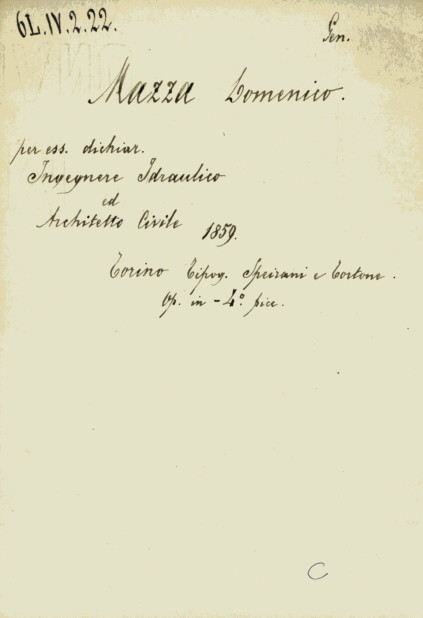 6L.IV.2.22.
Gen.
Mazza Domenico.
per ess. dichiar.
Ingegnere Idraulico
ed
Architetto Civile 1859.
Torino Tipog. Speirani e Tortone.
Op. in-4.° picc.
C